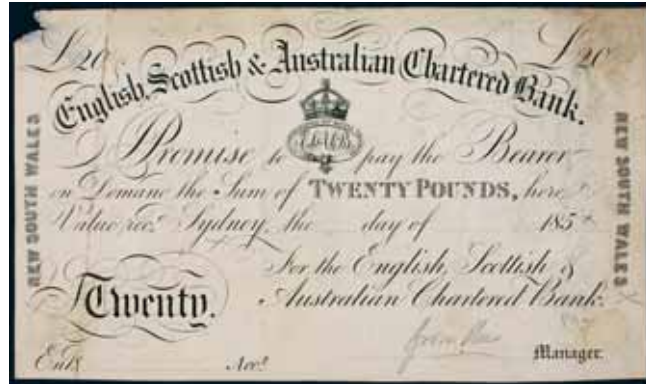 £20 £20
English, Scottish & Australian Chartered Bank.
NEW SOUTH WALES
NEW SOUTH WALES
I Promise to pay the Bearer
on Demand the Sum of TWENTY POUNDS, here
Value recd. Sydney, the day of 185
For the English, Scottish &
Twenty. Australian Chartered Bank.
Entd. Acct. Manager.